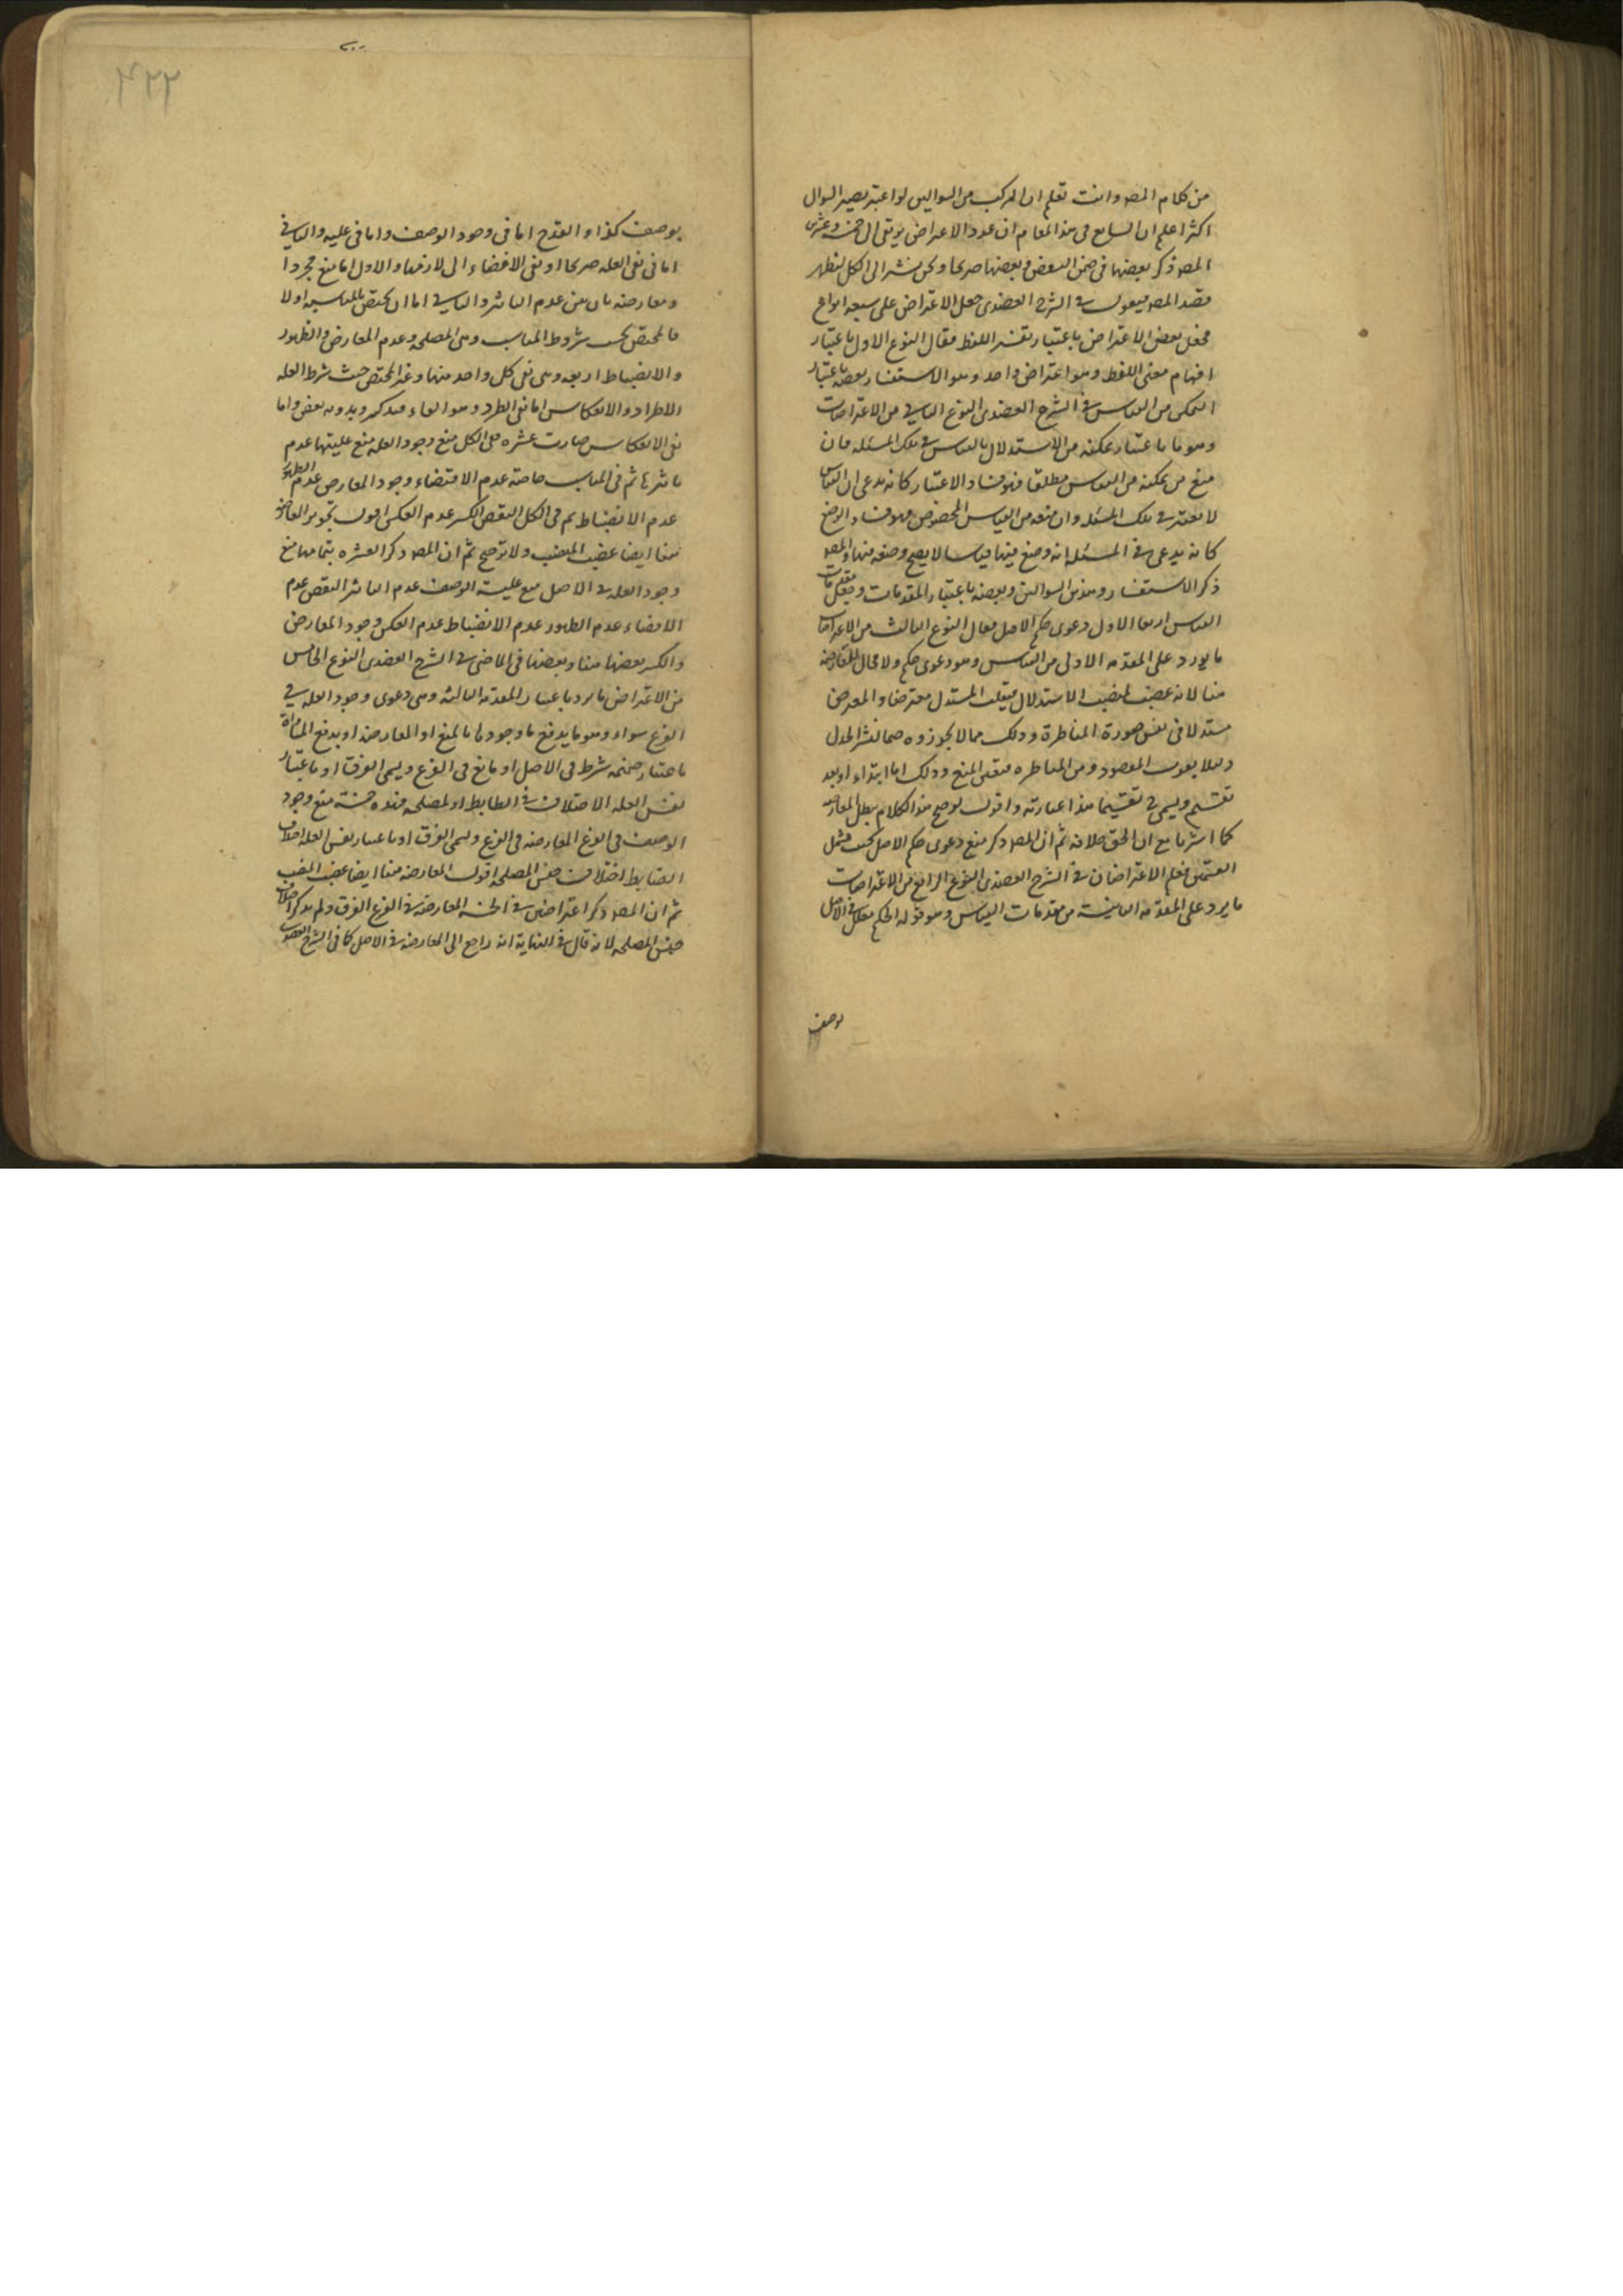 من كلام المصه وانت تعلم ان المركب من السوالين لو اعتبر يصير السوال
اكثر اعلم ان الشايع فى هذا المقام ان عدد الاعتراض يرتقى الى خمسة وعشرين
المصه ذكر بعضها فى ضمن البعض وبعضها صريحا ونحن نشير الى الكل ليظهر
قصد المصه فيقول فى الشرح العضدى جعل الاعتراض على سبعة انواع
فجعل بعض الاعتراض باعتبار نفس اللفظ فقال النوع الاول باعتبار
افهام معنى اللفظ وهو اعتراض واحد وهو الاستفسار بعضه باعتبار
التمكن من القياس فى الشرح العضدى النوع الثانى من الاعتراضات
وهو ما باعتبار تمكنه من الاستدلال بالقياس فى تلك المسئلة فان
منع من تمكنه من القياس مطلقا فهو فساد الاعتبار كانه يدعى ان القياس
لا يعتبر فى تلك المسئلة وان منعه من القياس المخصوص فهو فساد الوضع
كانه يدعى فى المسئلة انه وضع فيها قياسا لا يصح وضعه فيها والمصه
ذكر الاستفسار وهذين السوالين وبعضه باعتبار المقدمات وجعل مقدمات
القياس اربعا الاول دعوى حكم الاصل فقال النوع الثالث من الاعتراضات
ما يورد على المقدمة الاولى من القياس وهو دعوى حكم ولا مجال للمعارضة
هنا لانه غصب لمنصب الاستدلال فينقلب المستدل معترضا والمعترض
مستدلا فى نفس صورة المناظرة وذلك مما لا يجوزوه ضما لنشر الجدل
ولئلا يفوت المقصود من المناظرة فتعين المنع وذلك اما ابتداء او بعد
تقسيم ويسمى تقسيما هذا عبارته واقول توضيح هذا الكلام يبطل المعارضة
كما اشرنا مع ان الحق خلافه ثم ان المصه ذكر منع دعوى حكم الاصل بحيث يشمل
القسمين فعلم الاعتراضان فى الشرح العضدى النوع الرابع من الاعتراضات
ما يرد على المقدمة الثانية من مقدمات القياس وهو قوله الحكم معلل فى الاصل
بوصف
٤٢٢
بوصف كذا والقدح اما فى وجود الوصف واما فى عليته والثانى
اما فى نفى العلة صريحا او نفى الافضاء الى لازمها والاول اما منع مجردا
ومعارضة بان بين عدم التاثير والثانى اما ان يختص بالمناسبة او لا
فالمختص بحسب شروط المناسب وهى المصلحة وعدم المعارض والظهور
والانضباط اربعة وهى نفى كل واحد منها وغير المختص حيث شرط العلة
الاطراد والانعكاس اما نفى الطرد وهو الغاء قيد كسر وبدونه نقض واما
نفى الانعكاس صارت عشرة فى الكل منع وجود العلة منع عليتها عدم
تاثيرها ثم فى المناسب خاصة عدم الافضاء وجود المعارض عدم الظهور
عدم الانضباط ثم فى الكل النقض الكسر عدم العكس اقول تجويز المعارضة
هنا ايضا غصب المنصب ولا ترجيح ثم ان المصه ذكر العشرة بتمامها منع
وجود العلة فى الاصل منع علية الوصف عدم التاثير النقض عدم
الافضاء عدم الظهور عدم الانضباط عدم العكس وجود المعارض
والكسر بعضها هنا وبعضها فى الماضى فى الشرح العضدى النوع الخامس
من الاعتراض ما يرد باعتبار المقدمة الثالثة وهى دعوى وجود العلة فى
الفرع سواء وهو ما يدفع ما وجودها بالمنع او المعارضة او يدفع المساواة
باعتبار ضميمة شرط فى الاصل او مانع فى الفرع ويسمى الفرق او باعتبار
نفس العلة الاختلاف فى الضابط او المصلحة فهذه خمسة منع وجود
الوصف فى الفرع المعارضة فى الفرع ويسمى الفرق او باعتبار نفس العلة اختلاف
الضابط اختلاف جنس المصلحة اقول المعارضة هنا ايضا غصب المنصب
ثم ان المصه ذكر اعتراضين فى الخمسة المعارضة فى الفرع الفرق ولم يذكر اختلاف
جنس المصلحة لانه قال فى النهاية انه راجع الى المعارضة فى الاصل كما فى الشرح العضدى